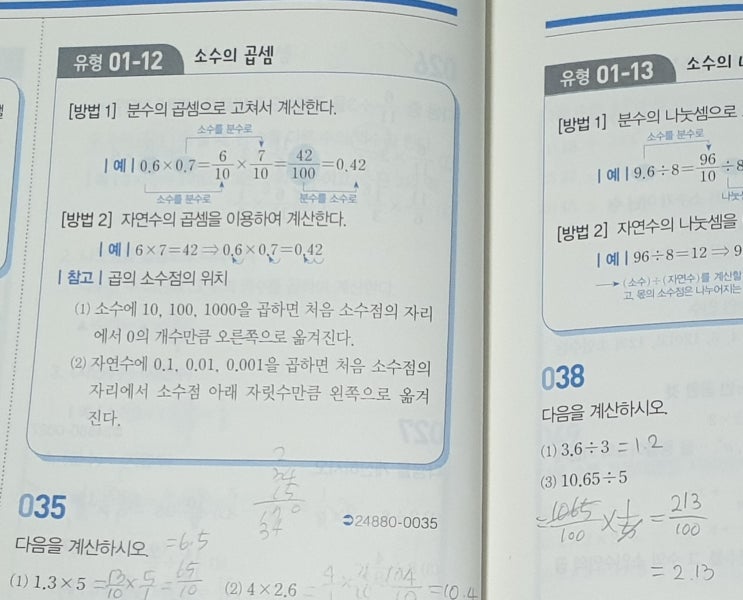 유형 01-12 소수의 곱셈
[방법 1] 분수의 곱셈으로 고쳐서 계산한다.
소수를 분수로
| 예 | 0.6×0.7=6/10×7/10=42/100=0.42
소수를 분수로 분수를 소수로
[방법 2] 자연수의 곱셈을 이용하여 계산한다.
| 예 | 6×7=42 ⇒ 0.6×0.7=0.42
| 참고 | 곱의 소수점의 위치
(1) 소수에 10, 100, 1000을 곱하면 처음 소수점의 자리
에서 0의 개수만큼 오른쪽으로 옮겨진다.
(2) 자연수에 0.1, 0.01, 0.001을 곱하면 처음 소수점의
자리에서 소수점 아래 자릿수만큼 왼쪽으로 옮겨
진다.
035
24880-0035
다음을 계산하시오.
=6.5
(1) 1.3×5 =13/10×5/1=65/10
(2) 4×2.6 =10.4
유형 01-13 소수의
[방법 1] 분수의 나눗셈으로
소수를 분수로
| 예 | 9.6÷8=96/10÷8
[방법 2] 자연수의 나눗셈을
| 예 | 96÷8=12 ⇒ 9
(소수)÷(자연수)를 계산할
고, 몫의 소수점은 나누어지는
038
다음을 계산하시오.
(1) 3.6÷3 =1.2
(3) 10.65÷5
=1065/100×1/5=213/100
=2.13